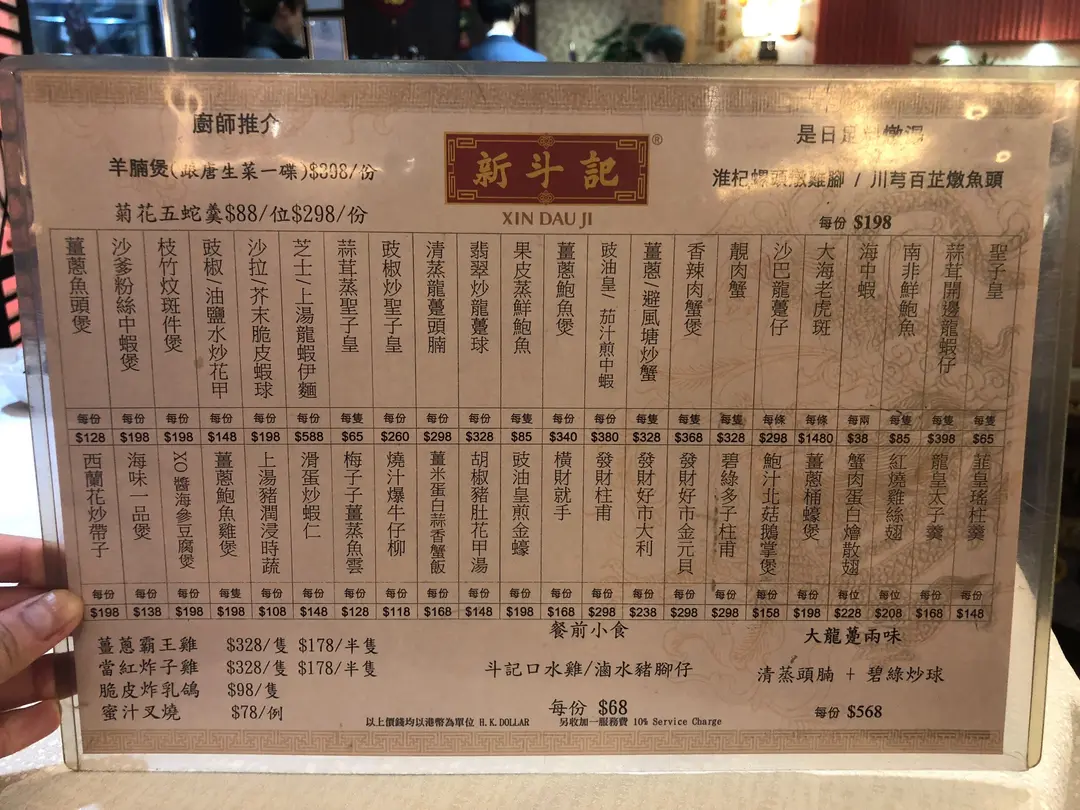 廚師推介
羊腩煲(跟唐生菜一碟)$308/份
菊花五蛇羹$88/位$298/份
新斗記®
XIN DAU JI
是日足料燉湯
淮杞螺頭燉雞腳 / 川芎百芷燉魚頭
每份 $198
聖子皇 每隻 $65
蒜茸開邊龍蝦仔 每隻 $398
南非鮮鮑魚 每隻 $85
海中蝦 每兩 $38
大海老虎斑 每條 $1480
沙巴龍躉仔 每條 $298
靚肉蟹 每隻 $328
香辣肉蟹煲 每隻 $368
薑蔥/避風塘炒蟹 每隻 $328
豉油皇/茄汁煎中蝦 每份 $380
薑蔥鮑魚煲 每份 $340
果皮蒸鮮鮑魚 每隻 $85
翡翠炒龍躉球 每份 $328
清蒸龍躉頭腩 每份 $298
豉椒炒聖子皇 每份 $260
蒜茸蒸聖子皇 每隻 $65
芝士/上湯龍蝦伊麵 每份 $588
沙拉/芥末脆皮蝦球 每份 $198
豉椒/油鹽水炒花甲 每份 $148
枝竹炆斑件煲 每份 $198
沙爹粉絲中蝦煲 每份 $198
薑蔥魚頭煲 每份 $128
韮皇瑤柱羹 每份 $148
龍皇太子羹 每份 $168
紅燒雞絲翅 每位 $208
蟹肉蛋白燴散翅 每位 $228
薑蔥桶蠔煲 每份 $198
鮑汁北菇鵝掌煲 每份 $158
碧綠多子柱甫 每份 $298
發財好市金元貝 每份 $298
發財好市大利 每份 $238
發財柱甫 每份 $298
橫財就手 每份 $168
豉油皇煎金蠔 每份 $198
胡椒豬肚花甲湯 每份 $148
薑米蛋白蒜香蟹飯 每份 $168
燒汁爆牛仔柳 每份 $118
梅子子薑蒸魚雲 每份 $128
滑蛋炒蝦仁 每份 $148
上湯豬潤浸時蔬 每份 $108
薑蔥鮑魚雞煲 每隻 $198
XO醬海參豆腐煲 每份 $198
海味一品煲 每份 $138
西蘭花炒帶子 每份 $198
薑蔥霸王雞 $328/隻 $178/半隻
當紅炸子雞 $328/隻 $178/半隻
脆皮炸乳鴿 $98/隻
蜜汁叉燒 $78/例
餐前小食
斗記口水雞/滷水豬腳仔
每份 $68
大龍躉兩味
清蒸頭腩 + 碧綠炒球
每份 $568
以上價錢均以港幣為單位 H.K.DOLLAR 另收加一服務費 10% Service Charge